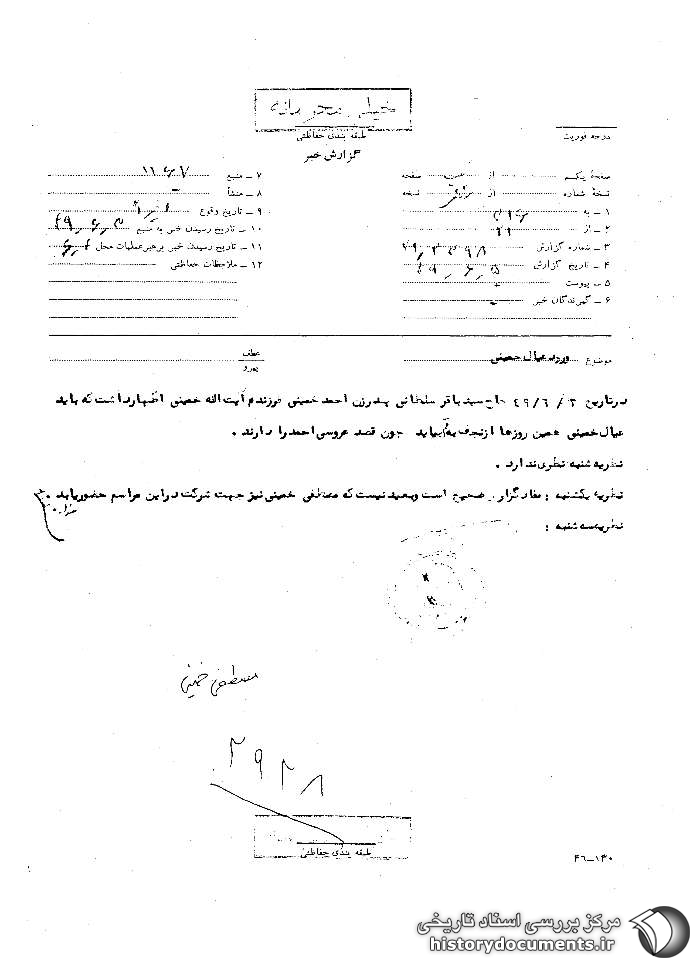 خیلی محرمانه
طبقه بندی حفاظتی
گزارش خبر
درجه فوریت
صفحهٔ یکم از صفحه
نسخهٔ شماره از نسخه
۱ – به ۳۱۶
۲ – از ۲۱
۳ – شماره گزارش
۴ – تاریخ گزارش ۴۹٫۶٫۵
۵ – پیوست
۶ – گیرندگان خبر
۷ – منبع
۸ – منشأ
۹ – تاریخ وقوع
۱۰ – تاریخ رسیدن خبر به منبع ۴۹٫۶٫۳
۱۱ – تاریخ رسیدن خبر برهبر عملیات محل
۱۲ – ملاحظات حفاظتی
موضوع ورود عیال خمینی
عطف
پیرو
در تاریخ ۳ / ۶ / ۴۹ حاج سید باقر سلطانی پدر زن احمد خمینی فرزند آیت اله خمینی اظهار داشت که باید
عیال خمینی همین روزها از نجف به بیاید چون قصد عروسی احمد را دارند .
نظریه شنبه نظری ندارد .
نظریه یکشنبه : مفاد گزارش صحیح است و بعید نیست که مصطفی خمینی نیز جهت شرکت در این مراسم حضور یابد .
نظریه سه شنبه :
مصطفی خمینی
۲۹۲۸
طبقه بندی حفاظتی
۴۶–۱۳۰
مرکز بررسی اسناد تاریخی
historydocuments.ir